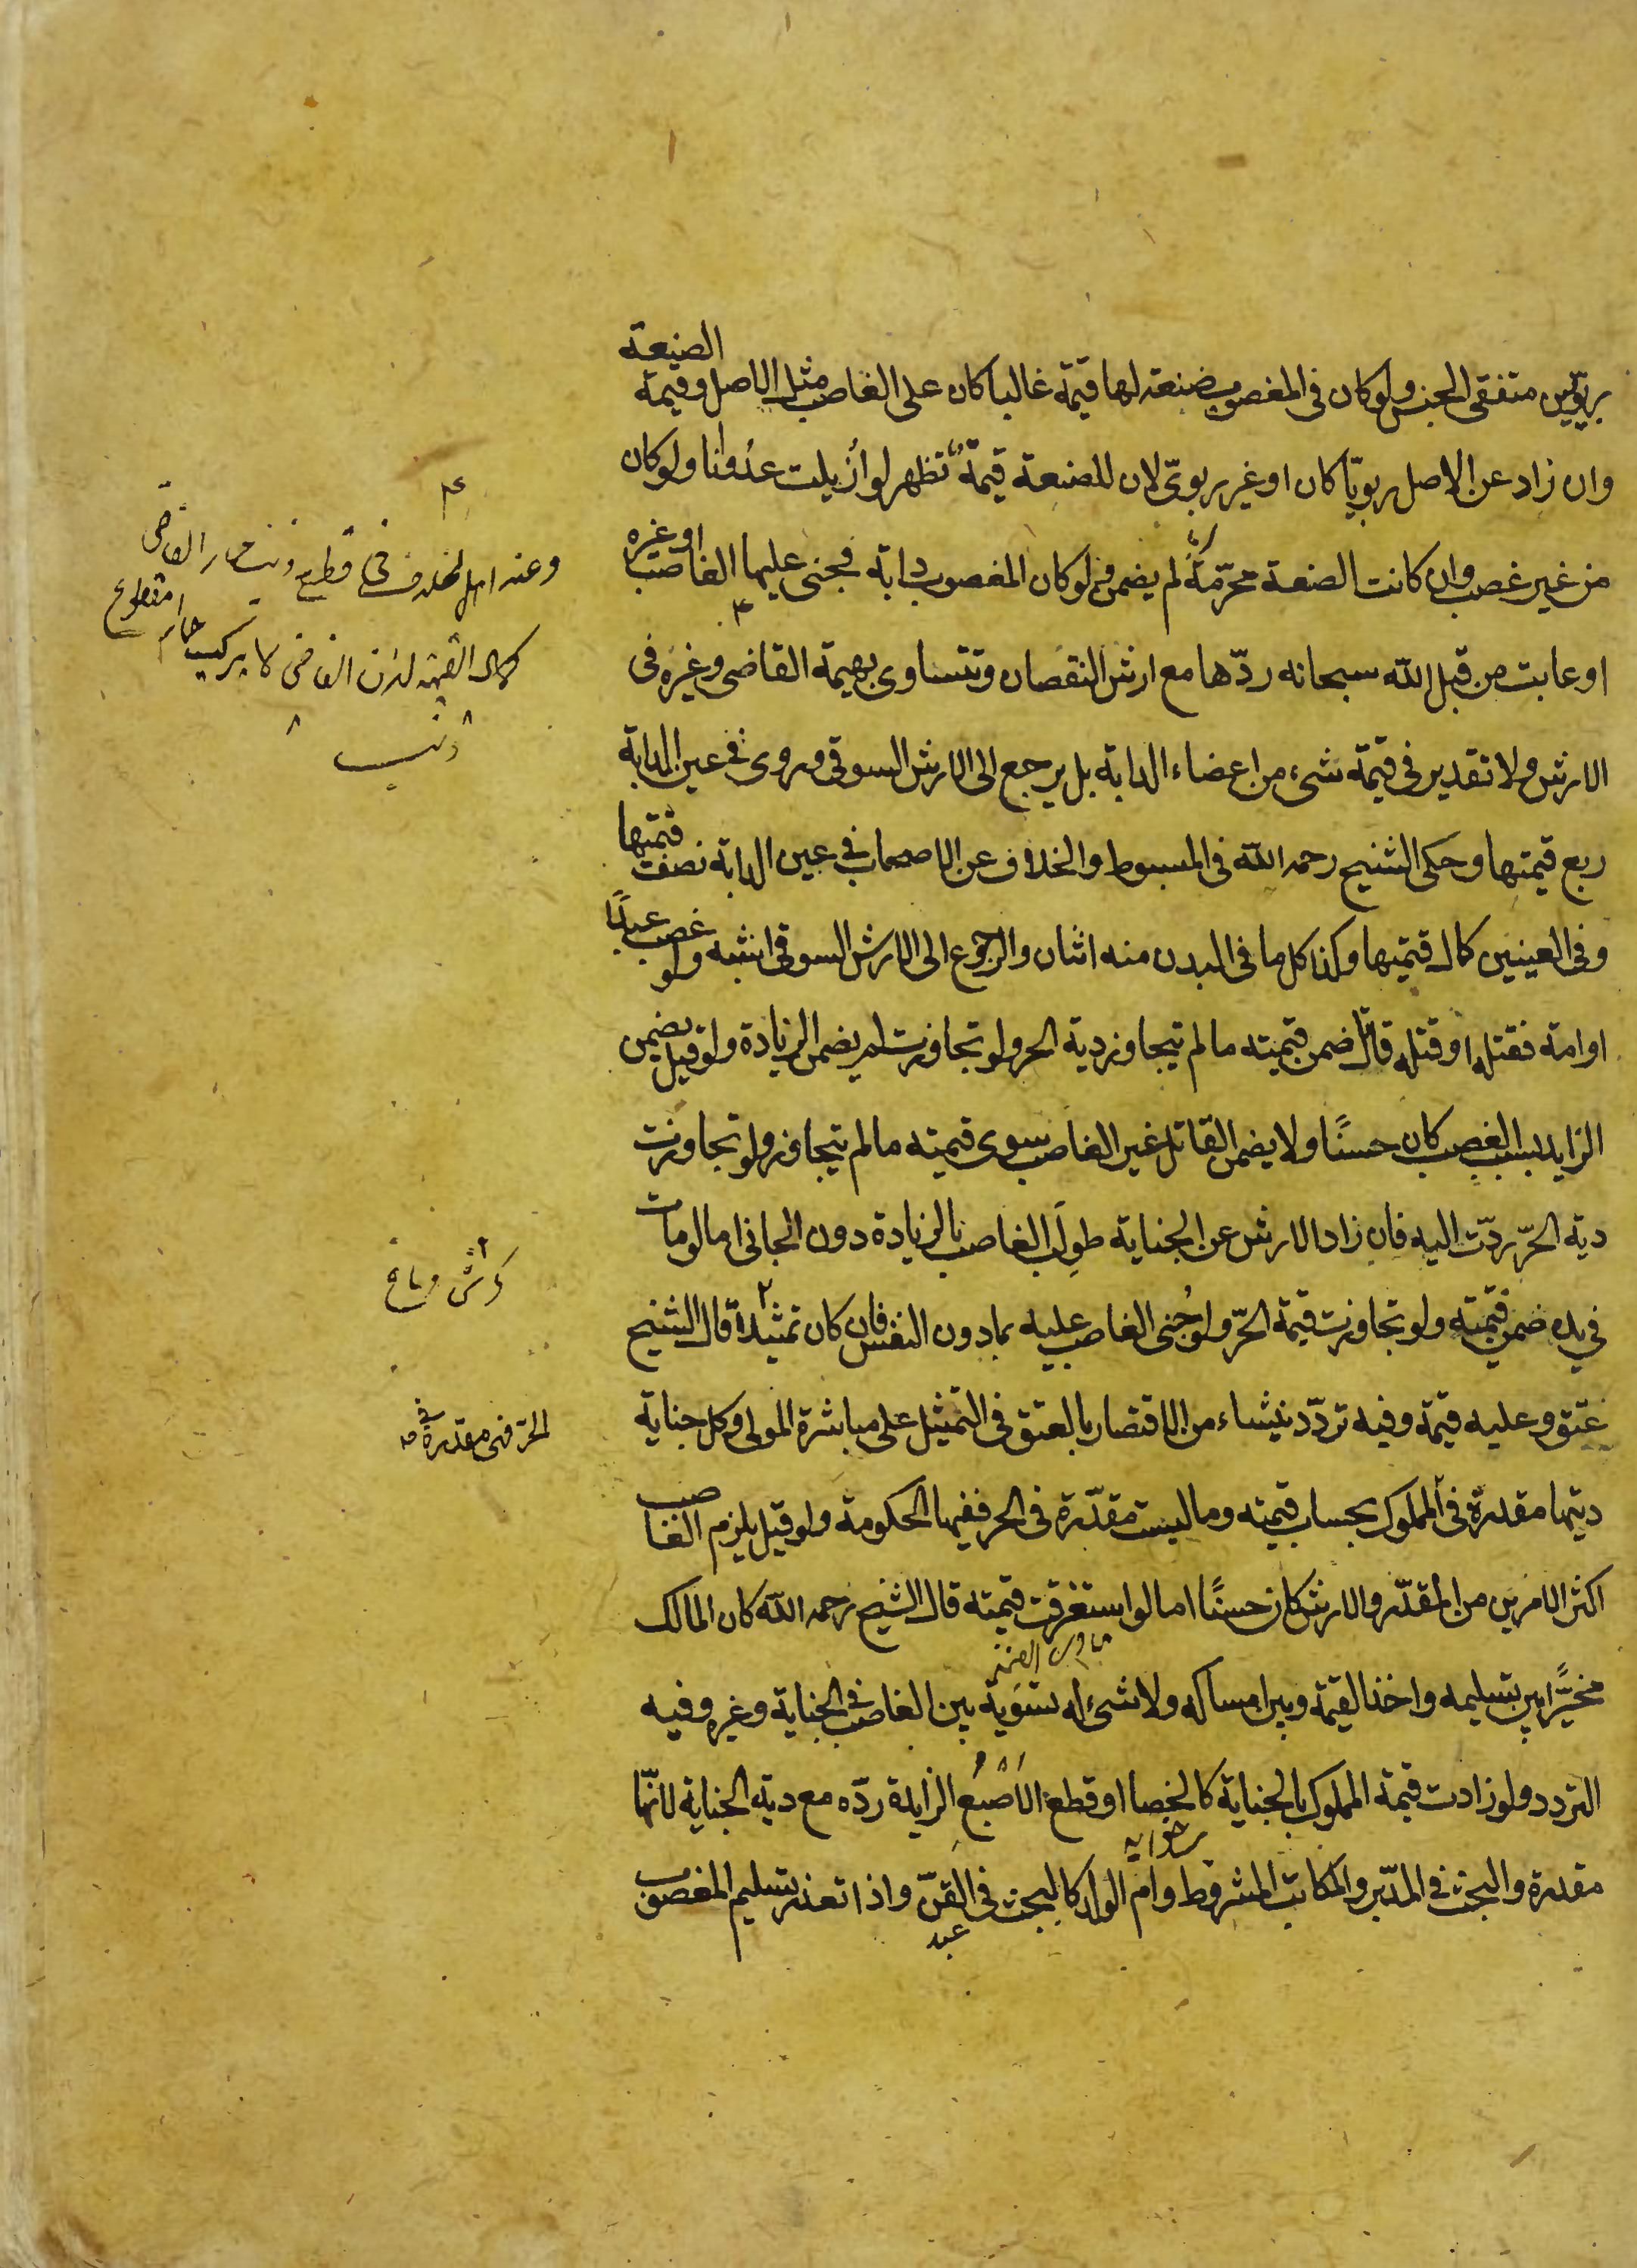 ربويّين متفقى الجنس ولو كان فى المغصوب صنعة لها قيمة غالبا كان على الغاصب مثل الاصل وقيمة الصنعة
وان زاد عن الاصل ربويّا كان او غير ربوىّ لان للصنعة قيمةً تظهر لو اُزيلت عدُوانا ولو كان
من غير غصب وان كانت الصنعة محرّمةً لم يضمن ولو كان المغصوب دابة فجنى عليها الغاصب او غيره
او عابت من قبل الله سبحانه ردّها مع ارش النقصان وتتساوى بهيمة القاضى وغيره فى
الارش ولا تقدير فى قيمة شىء من اعضاء الدابة بل يرجع الى الارش السوقى وروى فى عين الدابة
ربع قيمتها وحكى الشيخ رحمه الله فى المبسوط والخلاف عن الاصحاب فى عين الدابة نصف قيمتها
وفى العينين كمال قيمتها وكذا كل ما فى البدن منه اثنان والرجوع الى الارش السوقى اشبه ولو غصب عبدًا
او امة فقتله او قتله قاتل ضمن قيمته ما لم يتجاوز دية الحر ولو تجاوزت لم يضمن الزيادة ولو قيل يضمن
الزايد بسبب الغصب كان حسنًا ولا يضمن القاتل غير الغاصب سوى قيمته ما لم يتجاوز ولو تجاوزت
دية الحرّ ردّت اليه فان زاد الارش عن الجناية طولب الغاصب بالزيادة دون الجانى اما لو مات
فى يده ضمن قيمته ولو تجاوزت قيمة الحرّ ولو جُنى الغاصب عليه بما دون النفس فان كان تمثيلا قال الشيخ
عتق وعليه قيمة وفيه تردّد ينشاء من الاقتصار بالعتق فى التمثيل على مباشرة المولى وكل جناية
ديتها مقدرة فى المملوك بحساب قيمته وما ليست مقدّرة فى الحر ففيها الحكومة ولو قيل يلزم الغاصب
اكثر الامرين من المقدّر والارش كان حسنًا اما لو استغرقت قيمته قال الشيخ رحمه الله كان المالك
مخيّرًا بين تسليمه واخذ القيمة وبين امساكه ولا شىء له تسوية بين الغاصب فى الجناية وغيره وفيه
التردد ولو زادت قيمة المملوك بالجناية كالخصا او قطع الاصبع الزايدة ردّه مع دية الجناية لانّها
مقدرة والبحث فى المدّبر والمكاتب المشروط وام الولد كالبحث فى القنّ واذا تعذر تسليم المغصوب
عبد
وعند اهل الخلاف فى قطع ذنب حمار القاضى
كمال القيمة لان القاضى لا يركب حمار مقطوع
ذنب
الحر فهى مقدرة فى